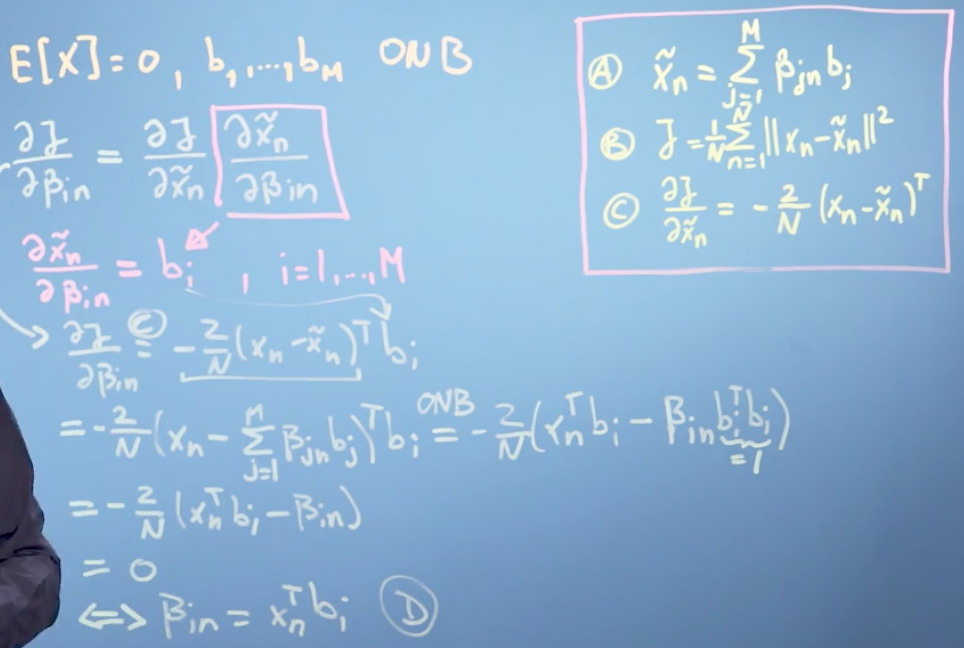 E[X]=0, b₁,...,b_M ONB
∂J/∂β_in = ∂J/∂x̃_n ∂x̃_n/∂β_in
∂x̃_n/∂β_in = b_i , i=1,...,M
∂J/∂β_in (C)= -2/N (x_n - x̃_n)^T b_i
= -2/N (x_n - Σ_{j=1}^{M} β_jn b_j)^T b_i ONB= -2/N (x_n^T b_i - β_in b_i^T b_i)
=1
= -2/N (x_n^T b_i - β_in)
= 0
⟺ β_in = x_n^T b_i (D)
(A) x̃_n = Σ_{j=1}^{M} β_jn b_j
(B) J = 1/N Σ_{n=1}^{N} ||x_n - x̃_n||²
(C) ∂J/∂x̃_n = -2/N (x_n - x̃_n)^T